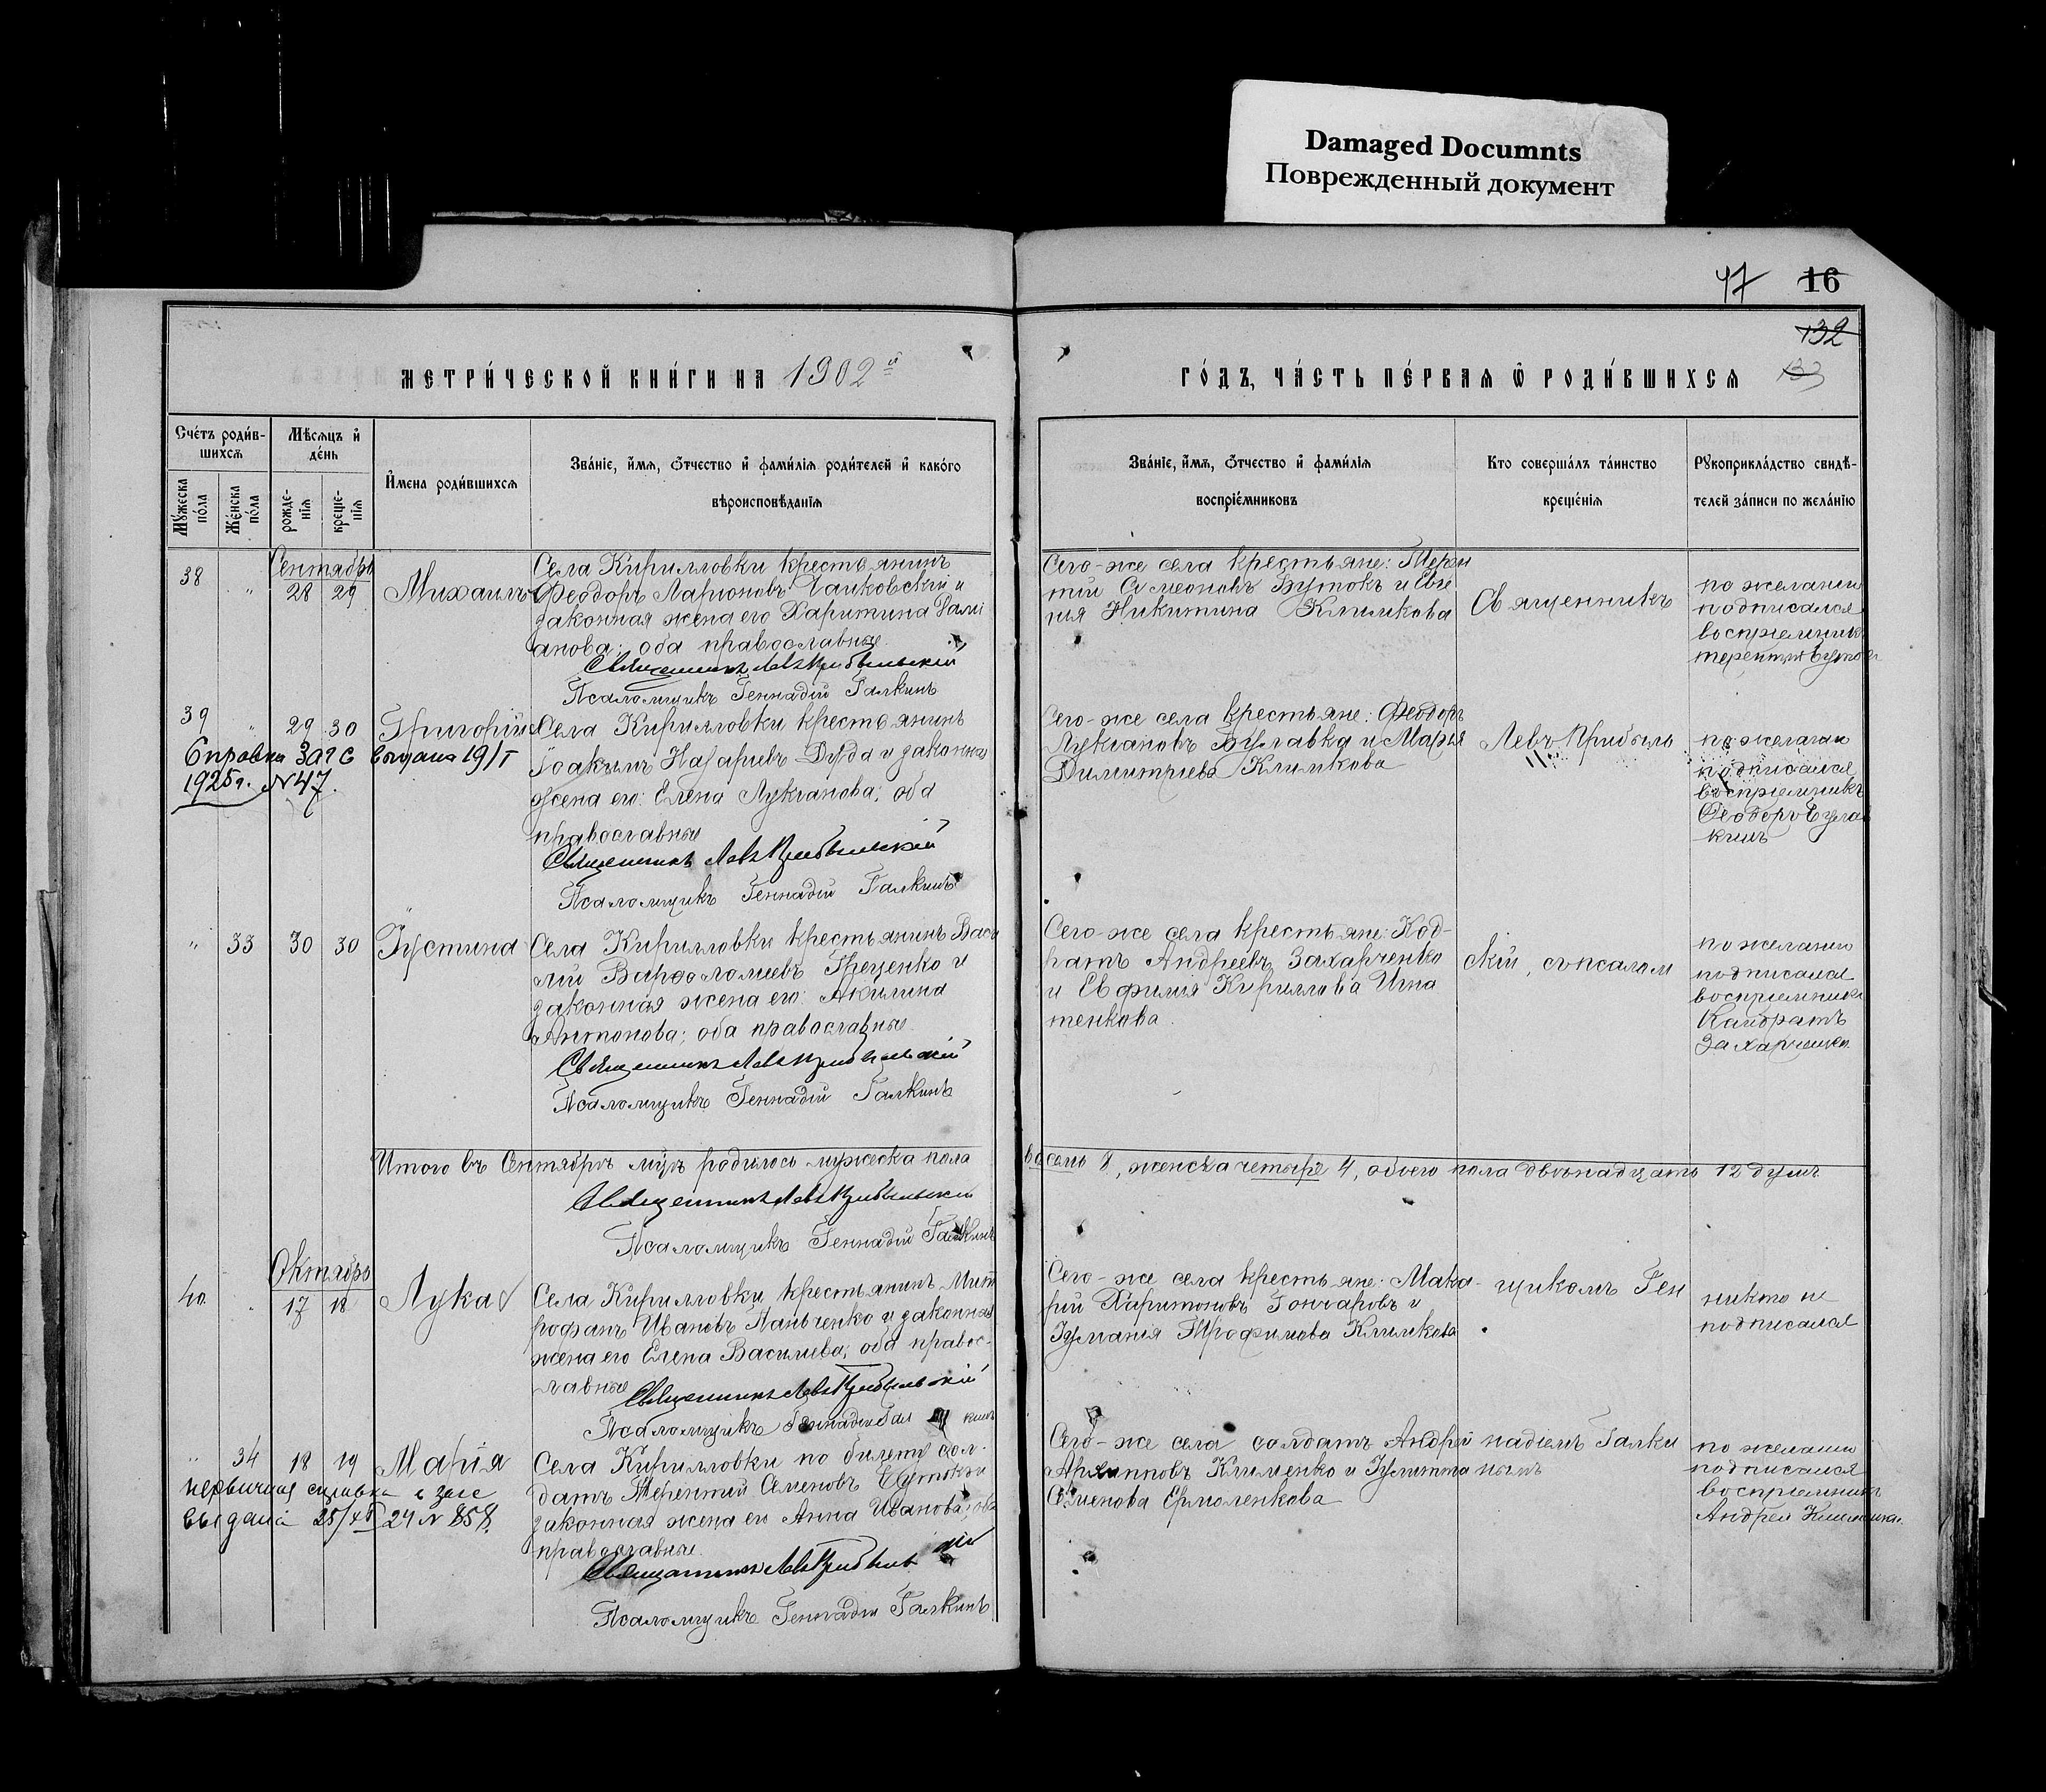 Damaged Documnts
Поврежденный документ
47 16
132
133
МЕТРИ́ЧЕСКОЙ КНИ́ГИ НА 1902й
ГО́ДЪ, ЧА́СТЬ ПЕ́РВАЯ Ѿ РОДИ́ВШИХСЯ
Сче́тъ роди́в-
шихся
Мѣ́сяцъ и҆
де́нь
Му́жеска по́ла
Же́нска по́ла
рожде-
нія
креще-
нія
И҆мена роди́вшихся
Зва́ніе, и҆́мя, ѻ҆́тчество и҆ фами́лія роди́телей и҆ како́го
вѣроисповѣ́данія
Зва́ніе, и҆́мя, ѻ҆́тчество и҆ фами́лія
воспріе́мниковъ
Кто соверша́лъ та́инство
креще́нія
Рꙋкоприкла́дство свидѣ́-
телей за́писи по жела́нію
Сентябрь
38 " 28 29 Михаилъ
Села Кирилловки крестьянинъ
Феодоръ Ларионовъ Чайковскій и
законная жена его Харитина Дами
анова; оба православные.
Священникъ Левъ Прибыльскій
Псаломщикъ Геннадій Галкинъ
Сего-же села крестьяне: Терен
тій Симеоновъ Бутокъ и Евге
нія Никитина Климкова
Священникъ
по желанію
подписался
воспріемникъ
Терентій Бутокъ
39 " 29 30 Григорій
Справка Загс выдана 19/I
1925 г. N 47.
Села Кирилловки крестьянинъ
Іоакимъ Назарьевъ Дурда и законная
жена его: Елена Лукіанова; оба
православные
Священникъ Левъ Прибыльскій
Псаломщикъ Геннадій Галкинъ
Сего-же села крестьяне: Феодоръ
Лукіановъ Булавка и Марья
Димитріева Климкова
Левъ Прибыль
по желанію
подписался
воспріемникъ
Феодоръ Булав
кинъ
" 33 30 30 Іустина
Села Кирилловки крестьянинъ Васи
лій Варфоломеевъ Греценко и
законная жена его: Акилина
Антонова; оба православные.
Священникъ Левъ Прибыльскій
Псаломщикъ Геннадій Галкинъ
Сего-же села крестьяне: Код-
ратъ Андреевъ Захарченко
и Евфимія Кириллова Игна
тенкова.
скій, съ псалом
по желанію
подписался
воспріемникъ
Кандратъ
Захарченко
Итого въ Сентябрѣ м-цѣ родилось мужеска пола
восемь 8, женска четыре 4, обоего пола двѣнадцать 12 душъ.
Священникъ Левъ Прибыльскій
Псаломщикъ Геннадій Галкинъ
Октябрь
40 " 17 18 Лука
Села Кирилловки, крестьянинъ Мит
рофанъ Ивановъ Панченко и законная
жена его Елена Васильева; оба правос-
лавные
Священникъ Левъ Прибыльскій
Псаломщикъ Геннадій Галкинъ
Сего-же села крестьяне: Мака-
рій Харитоновъ Гончаровъ и
Іуліанія Трофимова Климкова
щикомъ Ген
никто не
подписался
" 34 18 19 Марія
первичная справка с загс
выдана 25/ 24 N 858.
Села Кирилловки по билету сол-
датъ Терентій Семеновъ Бутокъ и
законная жена его Анна Иванова; оба
православные.
Священникъ Левъ Прибыльскій
Псаломщикъ Геннадій Галкинъ
Сего-же села солдатъ Андрей
Архипповъ Клименко и Іулитта
Семенова Ермоленкова
надіемъ Галки
нымъ
по желанію
подписался
воспріемникъ
Андрей Клименко.